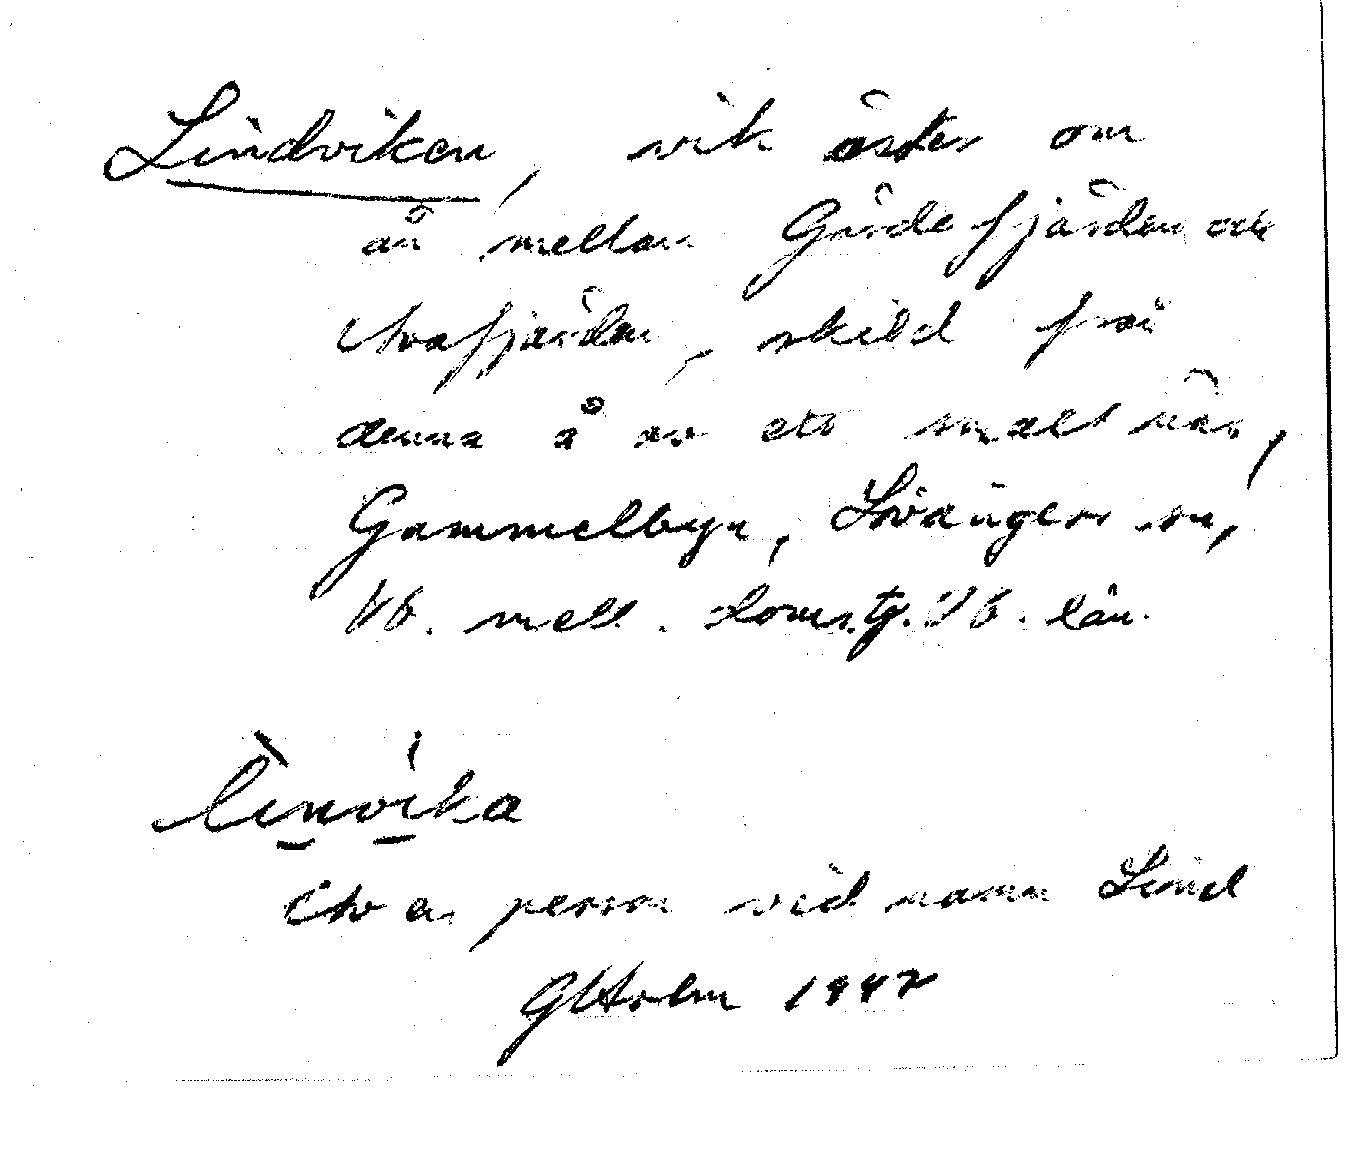 Lindviken, vik öster om
ån mellan Gärdefjärden och
Avafjärden, skild från
denna å av ett smalt när,
Gammelbyn, Lövångers sn,
Vb. mell. domstg. Vb. län.
Linvika
Av en person vid namn Lind
GHolm 1942